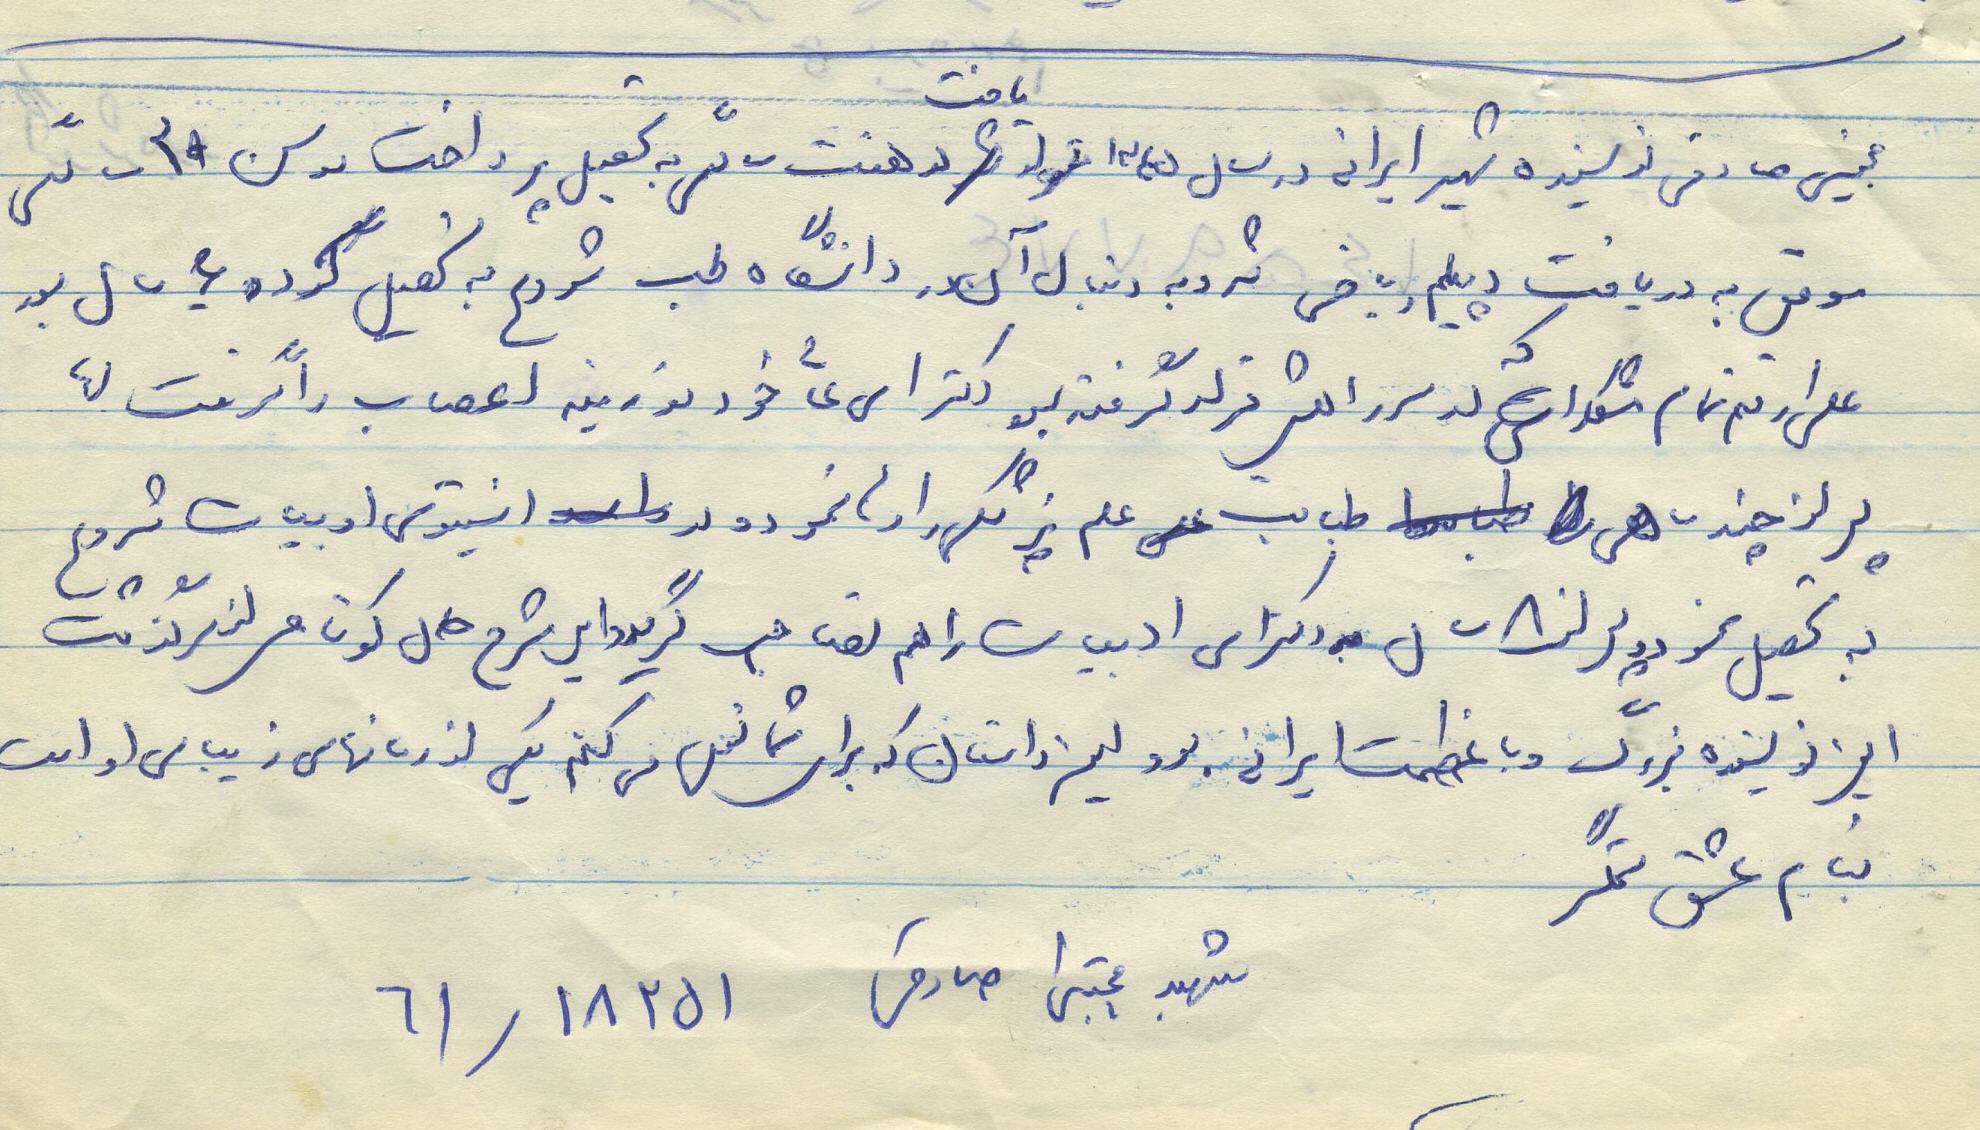 یافت
مجتبی صادقی نویسنده شهیر ایرانی در سال ۱۳۴۵ تولد در هفت سالگی به تحصیل پرداخت در سن ۱۸ سالگی
موفق به دریافت دیپلم ریاضی شد و به دنبال آن در دانشگاه طب شروع به تحصیل کرد و ۶ سال بعد
علی‌ارغم تمام مشکلاتی که در سر راهش قرار گرفته بود دکترای خود در زمینه اعصاب را گرفت
پس از چند ماهی طبابت علم پزشکی را رها نمود و در انستیتوی ادبیات شروع
به تحصیل نمود و پس از ۸ سال دکترای ادبیات را هم تصاحب گردید و این شرح حال کوتاهی از سرگذشت
این نویسنده بزرگ و با عظمت ایرانی بود و این داستان که برای شما نقل می‌کنم یکی از رمانهای زیبای او است
بنام عشق ستمگر
شهید مجتبی صادقی ۱۸۲۵۱ / ۶۱